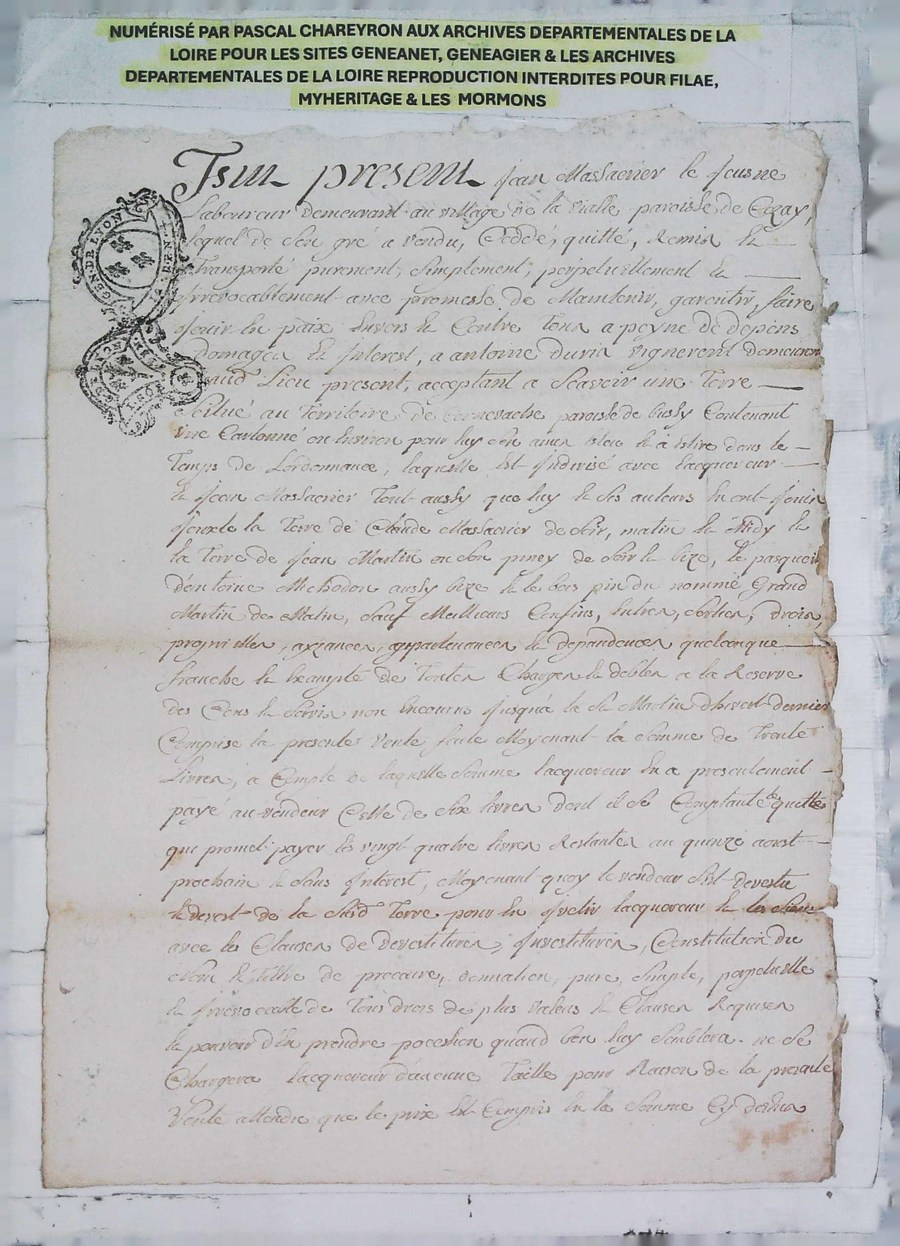 NUMÉRISÉ PAR PASCAL CHAREYRON AUX ARCHIVES DEPARTEMENTALES DE LA
LOIRE POUR LES SITES GENEANET, GENEAGIER & LES ARCHIVES
DEPARTEMENTALES DE LA LOIRE REPRODUCTION INTERDITES POUR FILAE,
MYHERITAGE & LES MORMONS
present Jean Massacrier le Jeusne
Laboureur demeurant au village de la vialle paroisse de Cezay,
lequel de son gré a vendu, Ceddé, quitté, Remis Et
GEN. DE LYON
Transporté purement, simplement, perpetuellement Et
Irrevocablement avec promesse de Maintenir, garentir, faire
Jouir En paix Envers Et Contre Tous a peyne de depens
domages Et Interest, a antoine duris vigneront demeurant
audt Lieu present, acceptant a Scavoir une Terre
Scitué au Territoire de paroisse de bussy Contenant
une Cartonné ou Environ pour luy Et à dans le
Temps de Lordonnance, laquelle Est Indivise avec Lacquereur
Et Jean Massacrier Tout aussy que luy Et ses auteurs En ont Jouir
Jouxte la Terre de Claude Massacrier de soir, matin Et Midy Et
la Terre de Jean Martin ou son piney de soir Et bize, le pasquier
d'entoine Michodon aussy bize Et le bois pin du nommé Grand
Martin de Matin, Sauf Meilleurs Confins, Entrées, sorties, droits,
proprietés, ayzances, appartenances Et dependences quelconque
franche Et Exempte de Toutes Charges Et debtes a la Reserve
des Cens Et Servis non Encourus Jusqu'a la St Martin d'hivert dernier
Comprise la presente Vente, faite Moyenant la Somme de Trente
Livres, a Compte de laquelle Somme Lacquereur En a presentement
payé au vendeur Celle de Six livres dont il Se Contante Et quitte
qui promet payer les vingt quatre livres Restantes au quinze aoust
prochain Et Sans Interest, Moyenant quoy le vendeur S'est devestu
Et devest de la Susd Terre pour En Jnvetir Lacquereur Et les Siens
avec les Clauses de devestitures, Investitures, Constitution du
Nom Et tiltre de precaire, donnation, pure, Simple, perpetuelle
Et Irrevocable de Tous droits de plus values Et Clauses Requises
Et pouvoir d'En prendre pocession quand bon luy Semblera. ne Se
Chargera Lacquereur d'aucune Taille pour Raison de la presente
Vente attendu que le prix Est Compris En la Somme Cy dessus